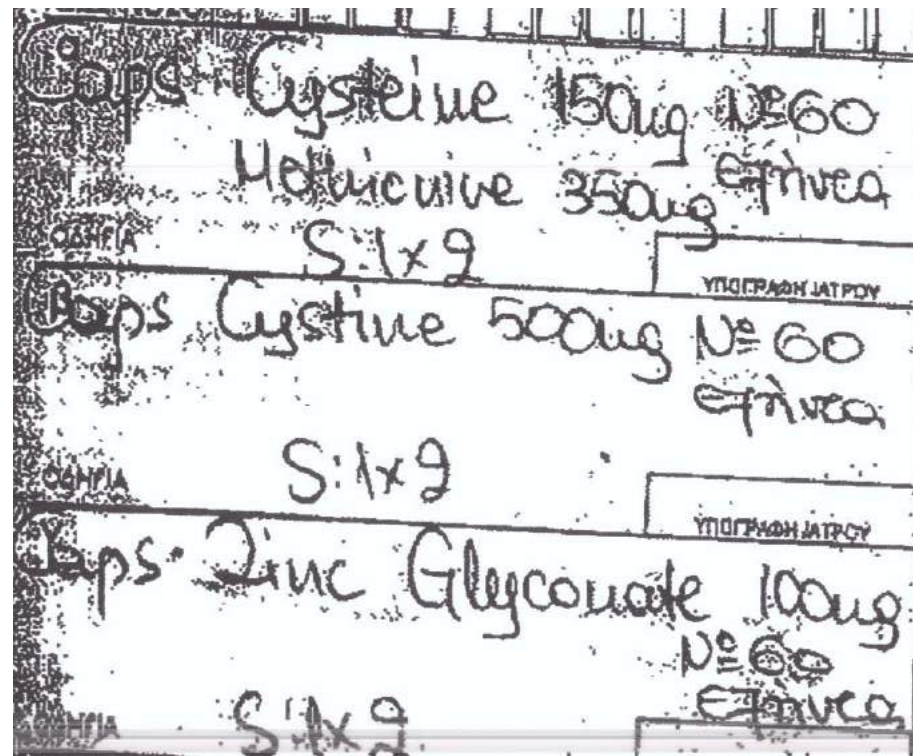 Caps Cysteine 150mg Nº 60
Methionine 350mg
ΟΔΗΓΙΑ S: 1x2
ΥΠΟΓΡΑΦΗ ΙΑΤΡΟΥ
Caps Cystine 500mg Nº 60
ΟΔΗΓΙΑ S: 1x2
ΥΠΟΓΡΑΦΗ ΙΑΤΡΟΥ
Caps Zinc Glyconate 100mg
Nº 60
ΟΔΗΓΙΑ S: 1x2